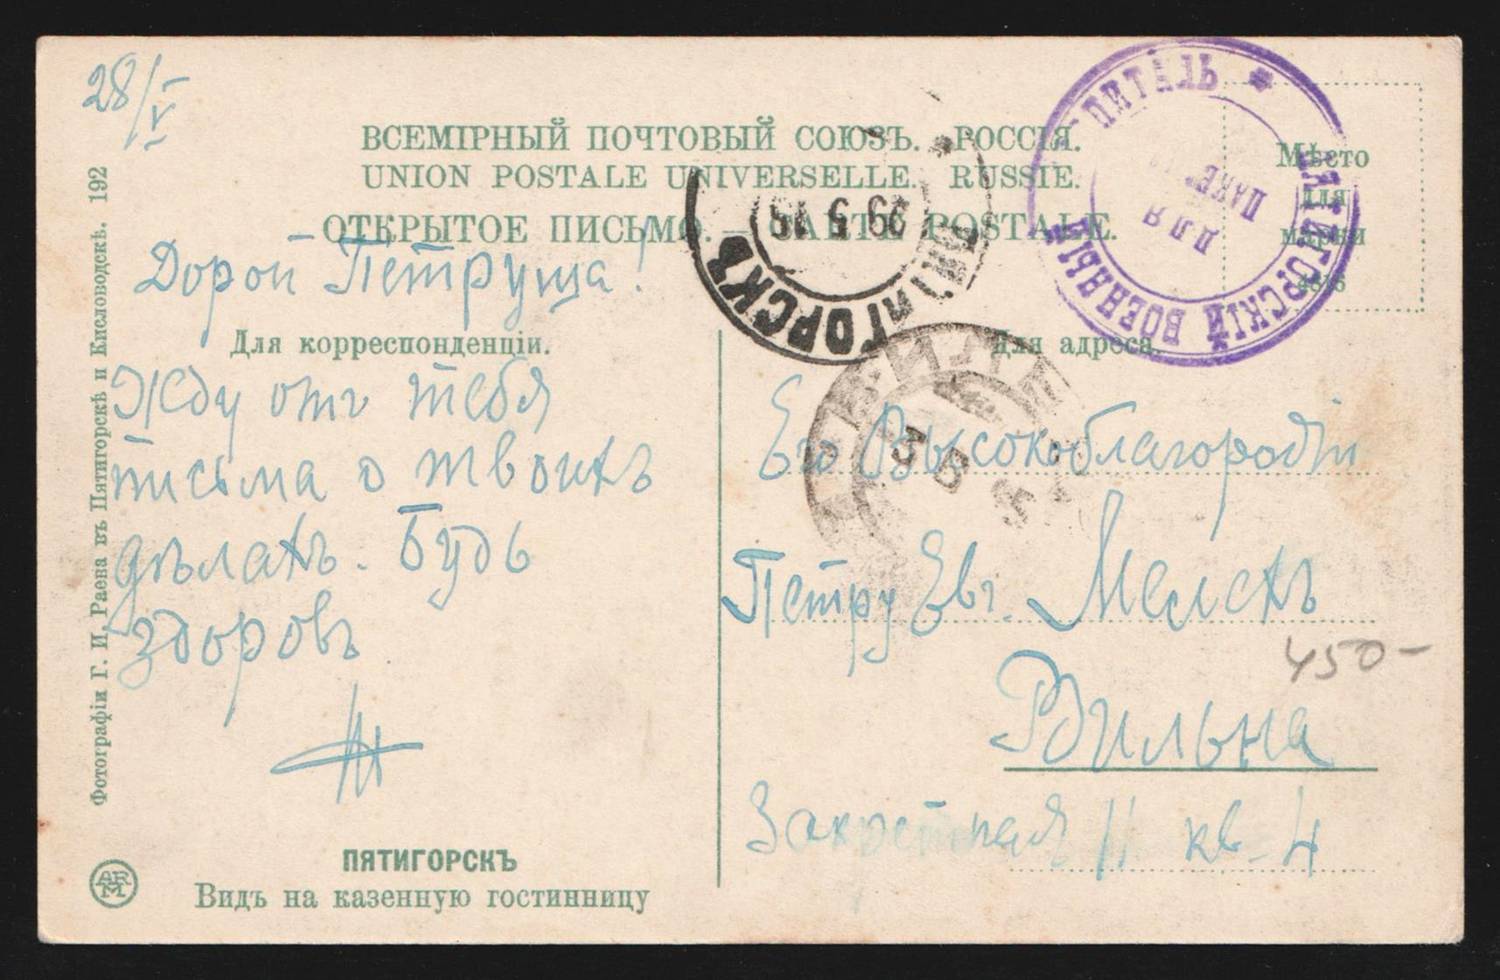 28/V
ВСЕМІРНЫЙ ПОЧТОВЫЙ СОЮЗЪ. РОССІЯ.
UNION POSTALE UNIVERSELLE. RUSSIE.
ОТКРЫТОЕ ПИСЬМО. — CARTE POSTALE.
Мѣсто
для
марки
ПЯТИГОРСКІЙ ВОЕННЫЙ ГОСПИТАЛЬ
ДЛЯ
ПАКЕ
ПЯТИГОРСКЪ
29 5 15
Дорой Петруша!
Для корреспонденціи.
Жду отъ тебя
письма о твоихъ
дѣлахъ. Будь
здоровъ
Для адреса.
ВИЛЬ
Его Высокоблагородію
Петру Евг.
Вильна
11 кв. 4
450-
Фотографіи Г. И. Раева въ Пятигорскѣ и Кисловодскѣ. 192
ПЯТИГОРСКЪ
Видъ на казенную гостинницу